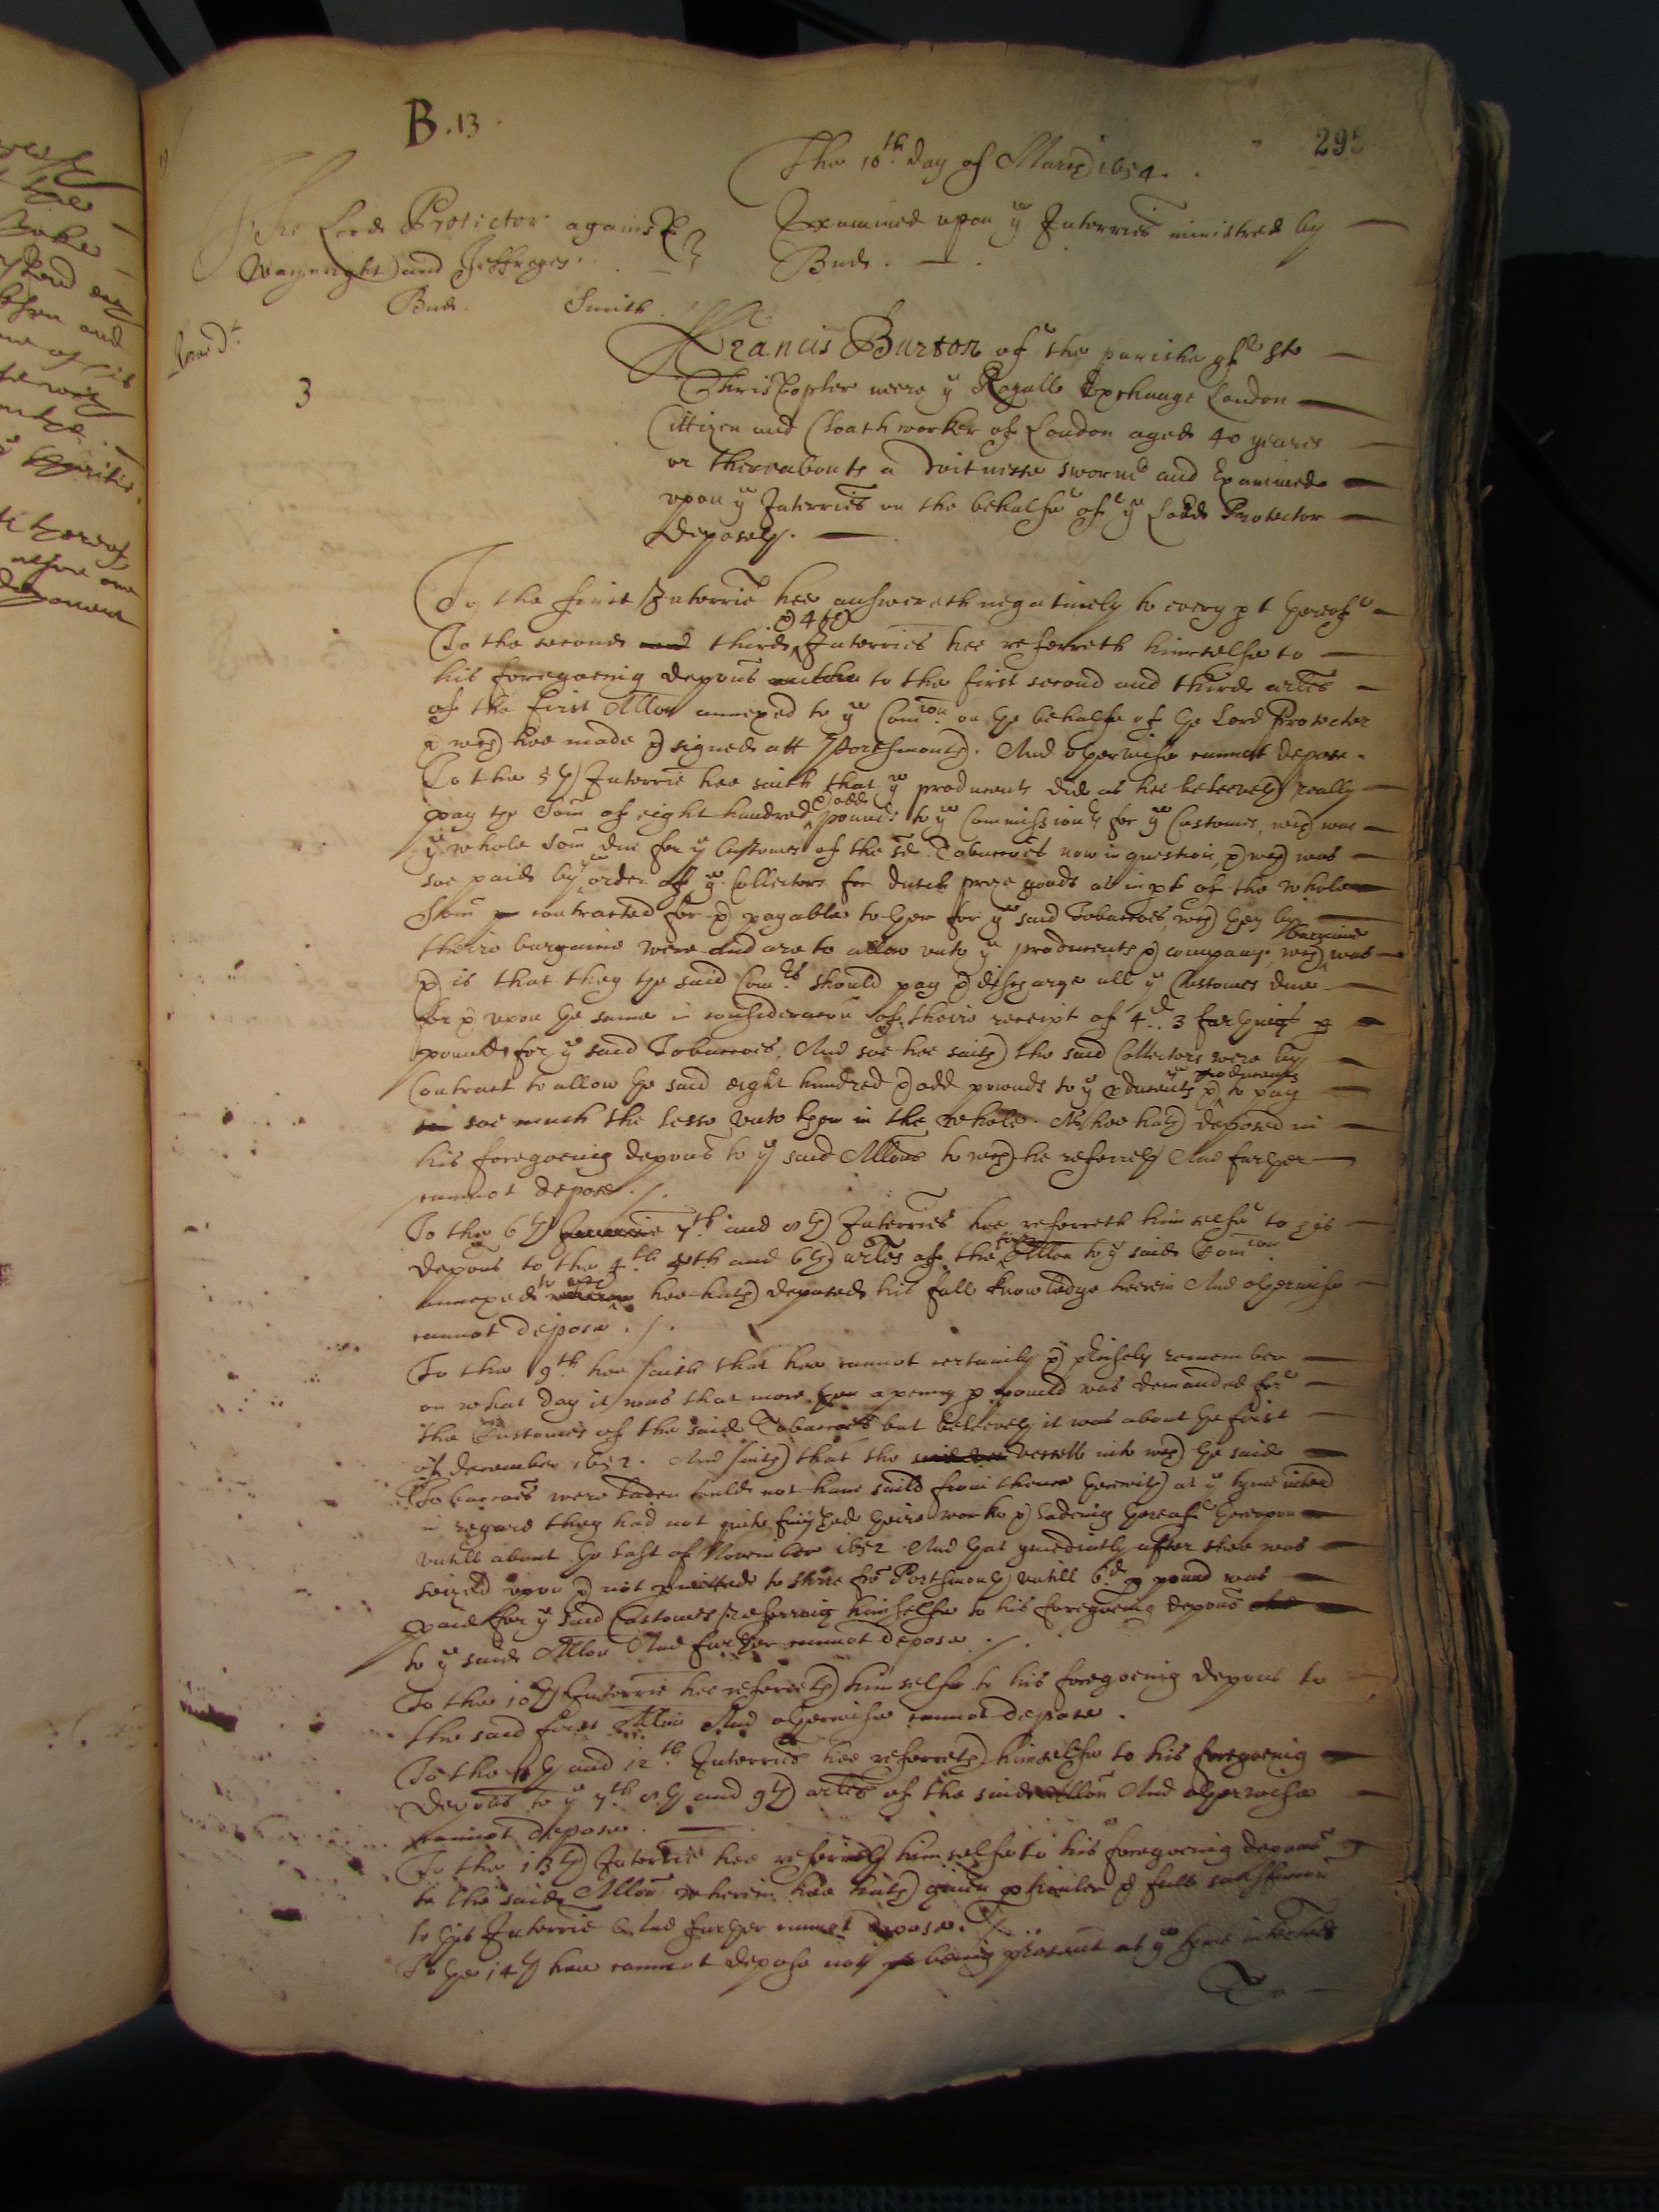 B.13.
295
The 10th day of March 1654.
The Lord Protector against
Waynright and Jeffreyes.
Bud. Smith.
Examined upon ye Interries ministred by
Bud.
3
Francis Burton of the parishe of St
Christopher neere ye Royall Exchange London
Cittizen and Cloathworker of London aged 40 yeares
or thereabouts a witnesse sworne and Examined
upon ye Interries on the behalfe of ye Lord Protector
deposeth.
To the first Interrie hee answereth negatively to every pt thereof
To the second and third & 4th Interries hee referreth himselfe to
his foregoeing deposns to the first second and third artles
of the first Allon annexed to ye Comion on the behalfe of the Lord Protector
wch hee made & signed att Portsmouth. And otherwise cannot depose.
To the 5th Interrie hee saith that ye producents did as hee beleeveth really
pay the Som of eight hundred & odd pounds to ye Commissionrs for ye Customes, wch was
ye whole Som due for ye Customes of the sd Tobaccoes now in question, & wch was
soe paid by ye order of ye Collectors for dutch prize goods as in pt of the whole
Som contracted for & payable to them for ye said Tobaccoes, wch they by
theire bargaine were and are to allow unto ye producents & company, wch bargaine was
& is that they the said Comrs should pay & discharge all ye Customes due
for & upon the same in consideracon of theire receipt of 4d 3 farthings p
pound for ye said Tobaccoes, And soe hee saith the said Collectors were by
Contract to allow the said eight hundred & odd pounds to ye producents & ye producents to pay
soe much the lesse unto them in the whole. As hee hath deposed in
his foregoeing deposns to ye said Allon to wch he referreth And further
cannot depose./.
To the 6th Interrie 7th and 8th Interries hee referreth himselfe to his
deposns to the 4th 5th and 6th artles of the first Allon to ye said Comion
annexed to wch hee hath deposed his full knowledge herein And otherwise
cannot depose./.
To the 9th hee saith that hee cannot certainly & precisely remember
on what day it was that more then a penny p pound was demanded for
the Customes of the said Tobaccoes but beleeveth it was about the first
of december 1652. And saith that the vessells into wch the said
Tobaccoes were laden could not have saild from thence therewith at ye tyme interd
in regard they had not quite finished theire worke & ladeing thereof thereupon
untill about the last of November 1652 And that imediatly after shee was
seized upon & not permitted to stirre fro Portsmouth untill 6d p pound was
paid for ye said Customes referring himselfe to his foregoeing deposns
to ye said Allon And further cannot depose./.
To the 10th Interrie hee referreth himselfe to his foregoeing deposns to
the said first Allon And otherwise cannot depose.
To the 11th and 12th Interries hee referreth himselfe to his foregoeing
Deposns to ye 7th 8th and 9th artles of the said Allon And otherwise
cannot depose.
To the 13th Interrie hee referreth himselfe to his foregoeing deposns
to the said Allon wherein hee hath given pticuler & full satisfaccon
to this Interrie And further cannot depose./.
To the 14th hee cannot depose not being present at ye tyme interrate
To